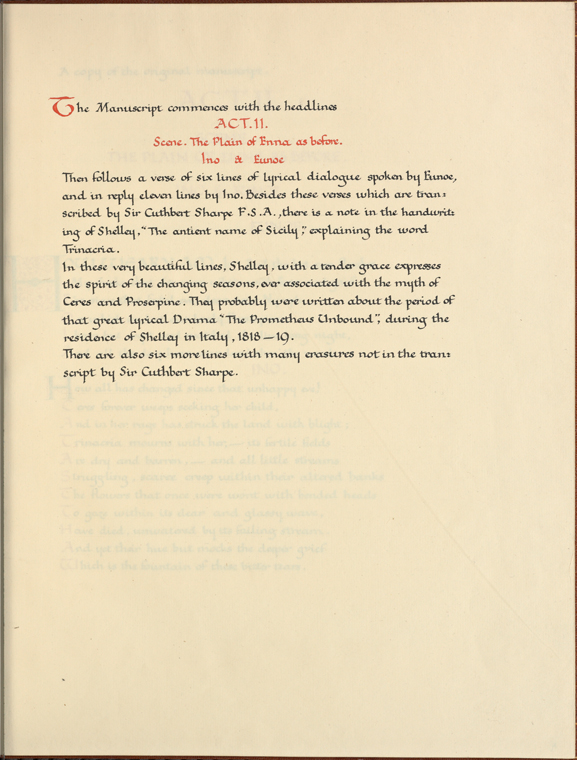 The Manuscript commences with the headlines
ACT.11.
Scene. The Plain of Enna as before.
Ino & Eunoe
Then follows a verse of six lines of lyrical dialogue spoken by Eunoe,
and in reply eleven lines by Ino. Besides these verses which are tran:
scribed by Sir Cuthbert Sharpe F.S.A., there is a note in the handwrit:
ing of Shelley, "The antient name of Sicily", explaining the word
Trinacria.
In these very beautiful lines, Shelley, with a tender grace expresses
the spirit of the changing seasons, ever associated with the myth of
Ceres and Proserpine. They probably were written about the period of
that great lyrical Drama "The Prometheus Unbound", during the
residence of Shelley in Italy, 1818–19.
There are also six more lines with many erasures not in the tran:
script by Sir Cuthbert Sharpe.